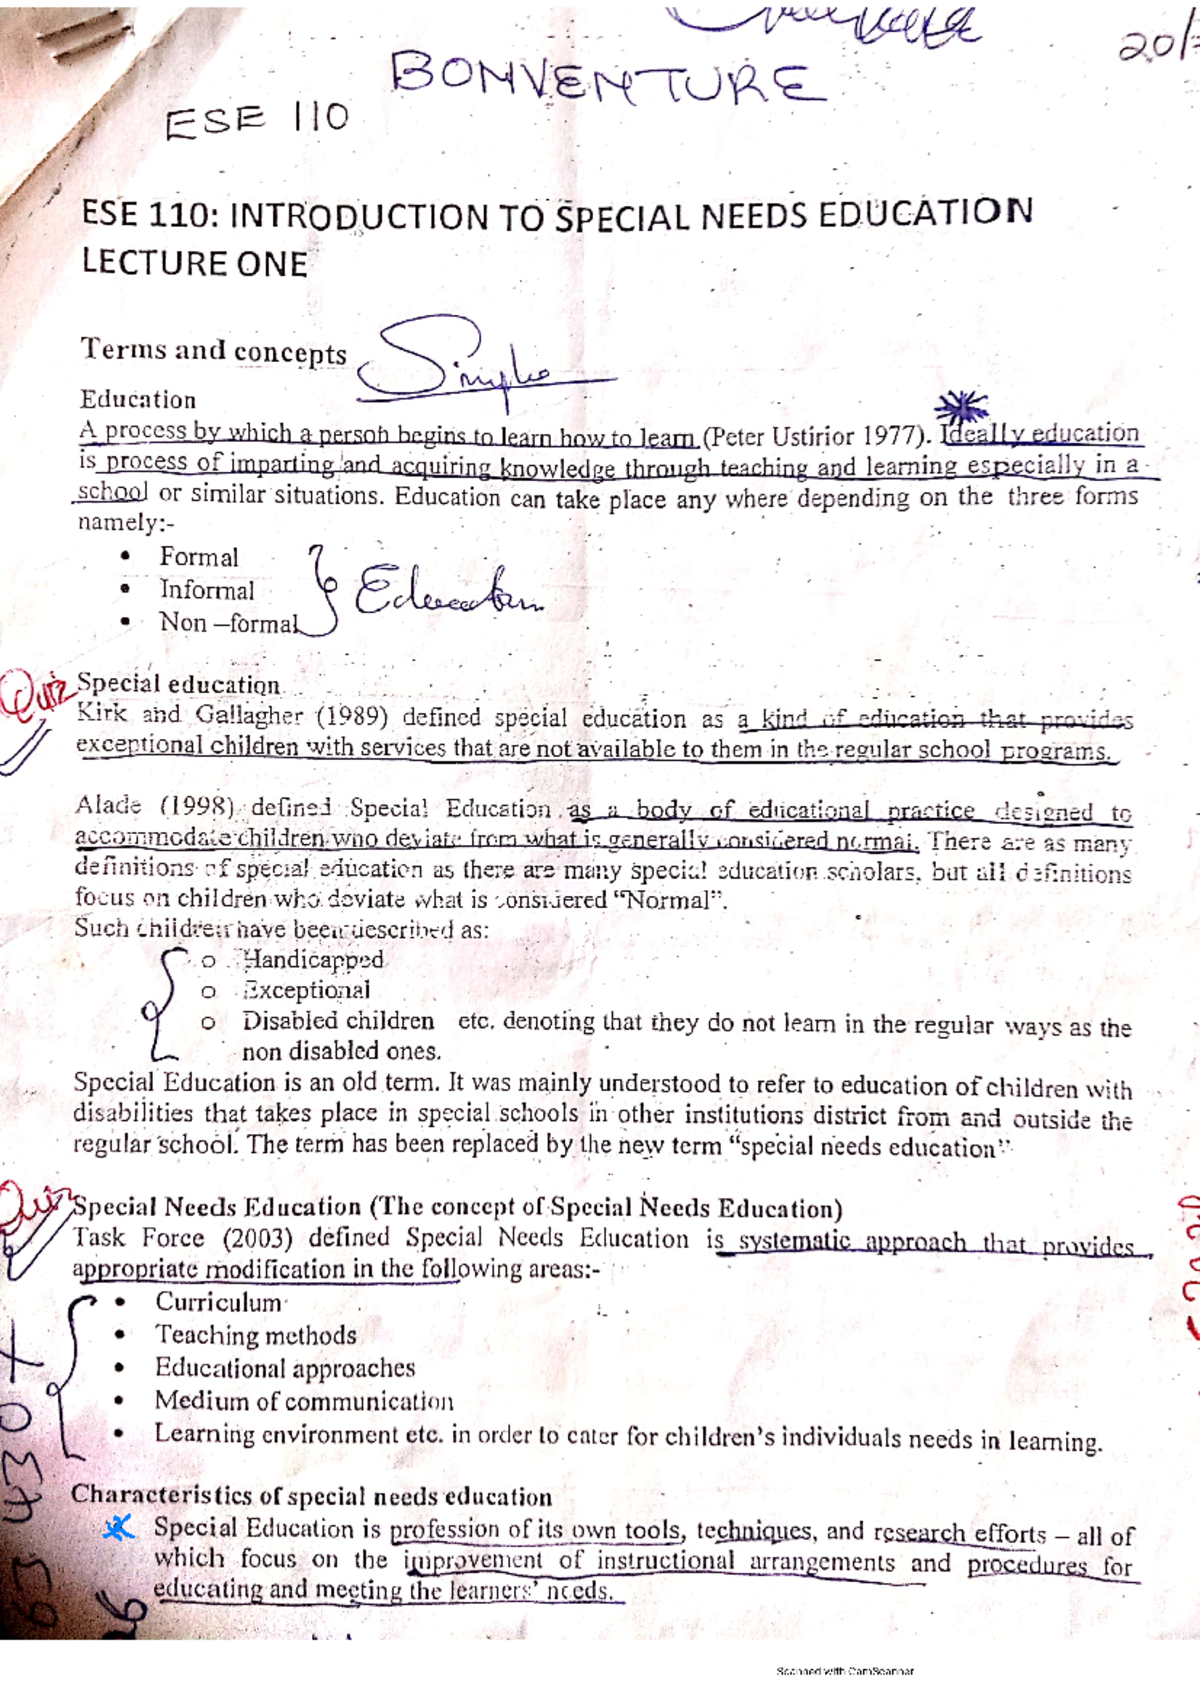 20/
BONVENTURE
ESE 110
ESE 110: INTRODUCTION TO SPECIAL NEEDS EDUCATION
LECTURE ONE
Terms and concepts
Education
A process by which a person begins to learn how to learn (Peter Ustirior 1977). Ideally education
is process of imparting and acquiring knowledge through teaching and learning especially in a
school or similar situations. Education can take place any where depending on the three forms
namely:-
• Formal
• Informal
• Non –formal
Education
Quiz
Special education
Kirk and Gallagher (1989) defined special education as a kind of education that provides
exceptional children with services that are not available to them in the regular school programs.
Alade (1998) defined Special Education as a body of educational practice designed to
accommodate children who deviate from what is generally considered normal. There are as many
definitions of special education as there are many special education scholars, but all definitions
focus on children who deviate what is considered “Normal”.
Such children have been described as:
o Handicapped
o Exceptional
o Disabled children etc. denoting that they do not learn in the regular ways as the
non disabled ones.
Special Education is an old term. It was mainly understood to refer to education of children with
disabilities that takes place in special schools in other institutions district from and outside the
regular school. The term has been replaced by the new term “special needs education”
Quiz
Special Needs Education (The concept of Special Needs Education)
Task Force (2003) defined Special Needs Education is systematic approach that provides
appropriate modification in the following areas:-
• Curriculum
• Teaching methods
• Educational approaches
• Medium of communication
• Learning environment etc. in order to cater for children’s individuals needs in learning.
Characteristics of special needs education
Special Education is profession of its own tools, techniques, and research efforts – all of
which focus on the improvement of instructional arrangements and procedures for
educating and meeting the learners’ needs.
Scanned with CamScanner